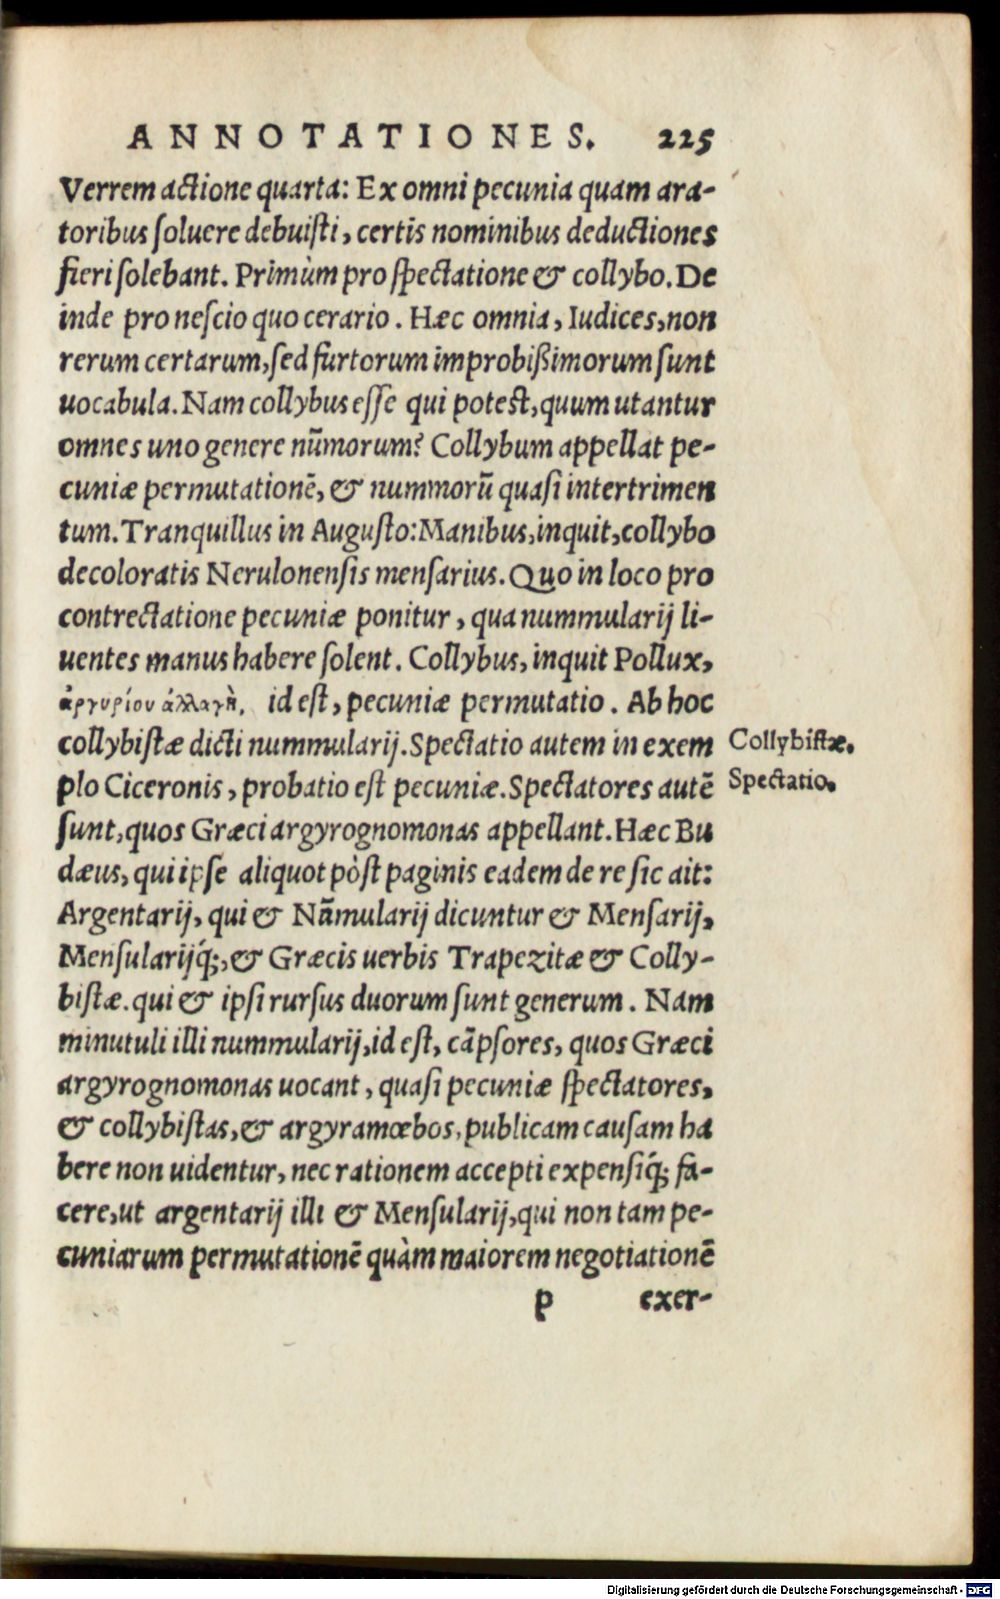 ANNOTATIONES. 225
Verrem actione quarta: Ex omni pecunia quam ara-
toribus soluere debuisti, certis nominibus deductiones
fieri solebant. Primùm pro spectatione & collybo. De
inde pro nescio quo cerario. Hæc omnia, Iudices, non
rerum certarum, sed furtorum improbißimorum sunt
uocabula. Nam collybus esse qui potest, quum utantur
omnes uno genere nũmorum? Collybum appellat pe-
cuniæ permutationē, & nummorũ quasi intertrimen
tum. Tranquillus in Augusto: Manibus, inquit, collybo
decoloratis Nerulonensis mensarius. Quo in loco pro
contrectatione pecuniæ ponitur, qua nummularij li-
uentes manus habere solent. Collybus, inquit Pollux,
ἀργυρίου ἀλλαγὴ. id est, pecuniæ permutatio. Ab hoc
collybistæ dicti nummularij. Spectatio autem in exem
Collybistæ.
plo Ciceronis, probatio est pecuniæ. Spectatores autē
Spectatio.
sunt, quos Græci argyrognomonas appellant. Hæc Bu
dæus, qui ipse aliquot pòst paginis eadem de re sic ait:
Argentarij, qui & Nũmularij dicuntur & Mensarij,
Mensularijq́;, & Græcis uerbis Trapezitæ & Colly-
bistæ. qui & ipsi rursus duorum sunt generum. Nam
minutuli illi nummularij, id est, cãpsores, quos Græci
argyrognomonas uocant, quasi pecuniæ spectatores,
& collybistas, & argyramœbos, publicam causam ha
bere non uidentur, nec rationem accepti expensiq́; fa-
cere, ut argentarij illi & Mensularij, qui non tam pe-
cuniarum permutationē quàm maiorem negotiationē
p exer-
Digitalisierung gefördert durch die Deutsche Forschungsgemeinschaft - DFG